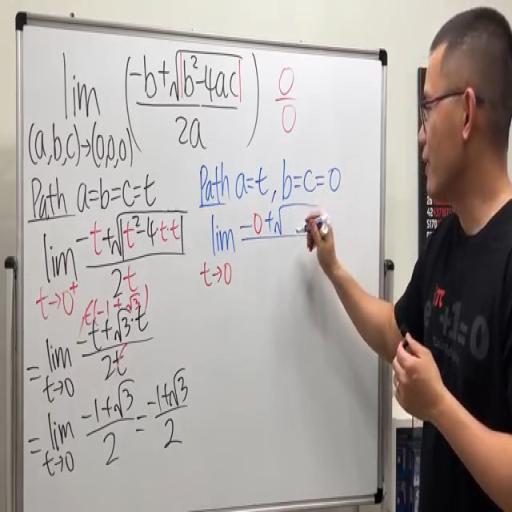 lim (a,b,c)→(0,0,0) ( (-b+√|b²-4ac|) / 2a ) 0/0
Path a=b=c=t
lim t→0⁺ (-t+√|t²-4·t·t|) / 2t
t(-1+√3)
= lim t→0 (-t+√3·t) / 2t
= lim t→0 (-1+√3) / 2 = (-1+√3) / 2
Path a=t, b=c=0
lim t→0 -0+√
π
+1=0